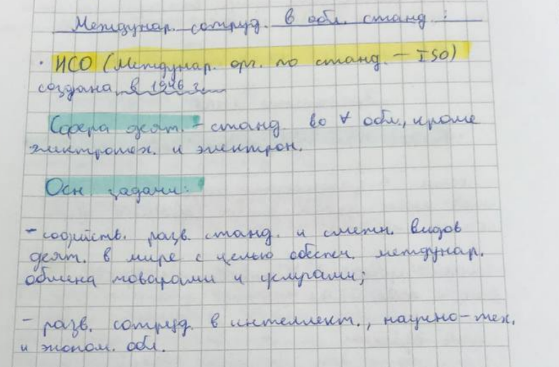 Междунар. сотруд. в обл. станд.:
· ИСО (Междунар. орг. по станд. – ISO)
создана в 1946 г.
Сфера деят. – станд. во ∀ обл., кроме
электротех. и электрон.
Осн задачи:
– содейств. разв. станд. и смежн. видов
деят. в мире с целью обеспеч. междунар.
обмена товарами и услугами;
– разв. сотруд. в интеллект., научно-тех.
и эконом. обл.